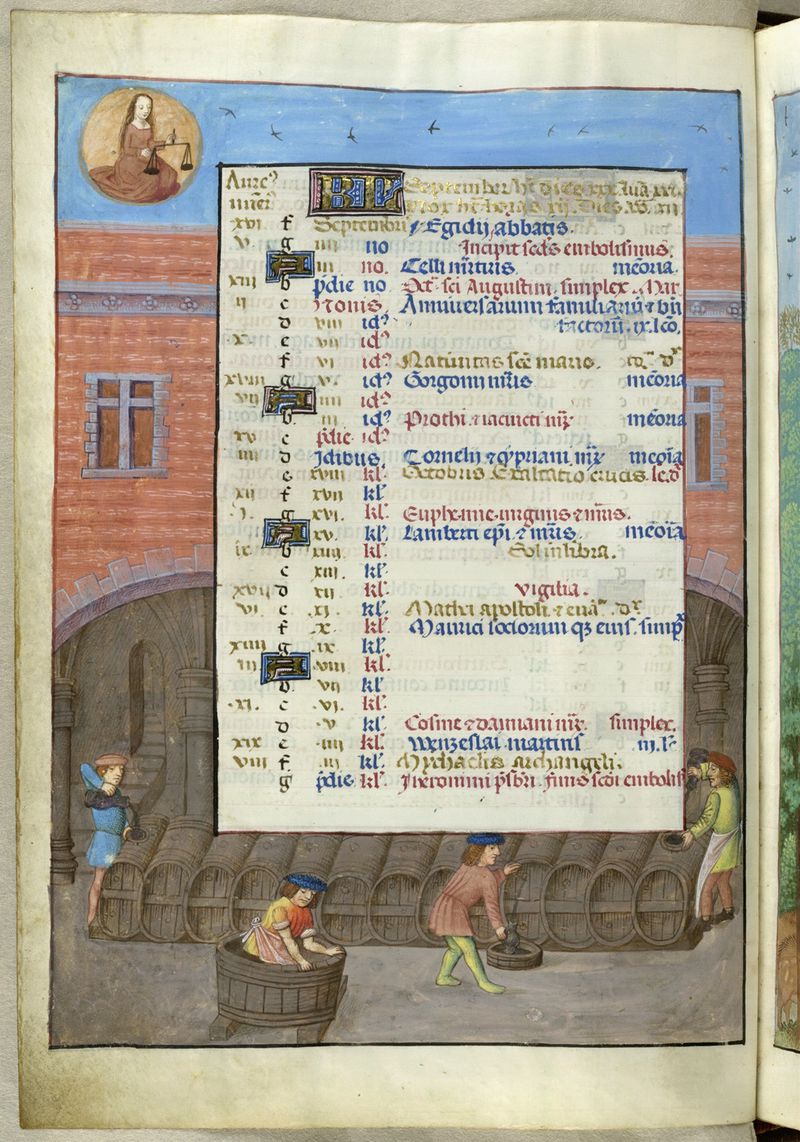 Aure9 KL September ht dies xxx luā xxx.
nūer nox ht horas xij. Dies v̄o xij
xvi f Septembris Egidij abbatis.
v. g iiii no Incipit sedˢ embolismus.
A iii no. Celli mr̄tiris memoria.
xiii b p̄die no Oct sci Augustini simplex. Mar
ii c Nonis Anniversarium familiariū ⁊ bn̄
d viii id9 factorū. ix lco.
x. e vii id9
f vi id9 Nativitas scē marie.
xviii g v. id9 Gorgonii mr̄is memoria
vii A iiii id9
b iii id9 Prothi ⁊ iacincti mr̄ memoria
xv c p̄die id9
iiii d Idibus Cornelij ⁊ cypriani mr̄ memoīa
e xviii kl. Octobris Exaltatio crucis.
xii f xvii kl.
i. g xvi. kl. Euphemie virginis ⁊ mr̄is.
A xv. kl. Lamberti epi ⁊ mr̄is. memoīa
ix b xiiii kl. Sol in libra.
c xiii. kl.
xvii d xii kl. vigilia.
vi. e xi. kl. Mathei apostoli ⁊ eva
f x. kl. Maurici sociorum qz eius. simp
xiiii g ix kl.
iii A viii kl.
b vii kl.
xi. c vi. kl.
d v kl. Cosme ⁊ damiani mr̄. simplex.
xix e iiii kl. Wenzeslai martiris m. l
viii f iii kl. Mychaelis archangeli.
g p̄die kl. Iheronimi p̄sbri. finis scdi embolis